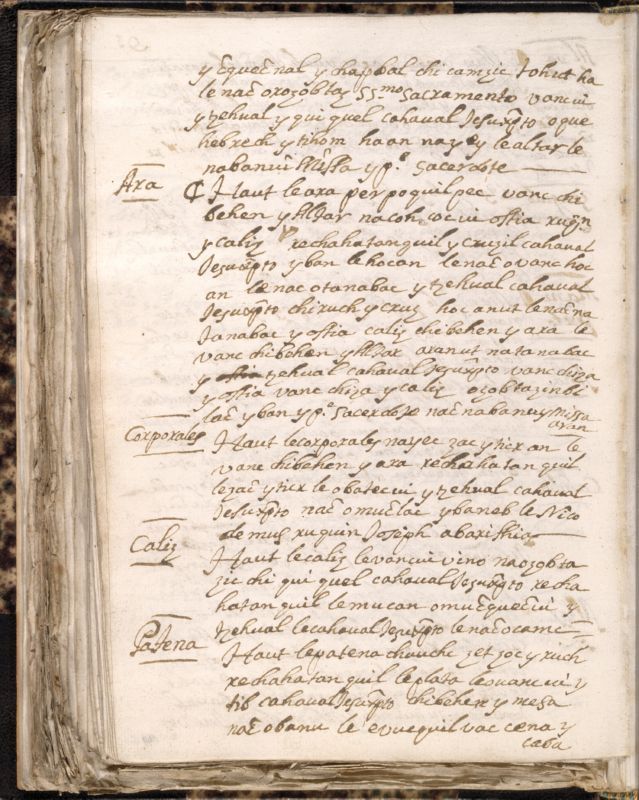 y c̄quec̄ nal y chapbal chi camzic tohut ha
le nac̄ oxozobtaz SSmo Sacramento vancui
y tzehual y qui quel cahaual Jesuxp̄to o que
hebrech y tihom ha an nay y le altar le
nabanvi Missa y p.e Sacerdote
Ara
Haut le ara per poquil pec vanc chi
behen y Altar na coh cui ostia ruq̄n
y caliz rechahatanquil y cruzil cahaual
Jesuxp̄to y ban le hocan le nac̄ ovanc hoc
an le nac otanabac y tzehual cahaual
Jesuxp̄to chi ruch y cruz hoc anut le nac̄ na
tanabac y ostia caliz chi behen y ara le
vanc chi behen y Altar aranut na tanabac
y tzehual cahaual Jesuxp̄to vanc chiza
y ostia vanc chiza y caliz ozobtazinbi
lac̄ y ban y p.e Sacerdote nac̄ nabanuy missa
aran
Corporales
Haut le corporales nayec zac y ticr an le
vanc chi behen y ara rechahatan quil
le zac̄ y ticr le obatecui y tzehual cahaual
Jesuxp̄to nac̄ omuc̄lac y baneb le Nico
demus ruquin Joseph abarithia
Caliz
Haut le caliz le vancui vino na ozobta
zic chi qui quel cahaual Jesuxp̄to recha
hatan quil le mucan omuc̄quec̄ui y
tzehual le cahaual Jesuxp̄to le nac̄ ocamc
Patena
Haut le patena chauchi zet zoc y ruch
rechahatan quil le plato le ovancui y
tib cahaual Jesuxp̄to chi behen y mesa
nac̄ obanu le evuequil vac cena y
caba